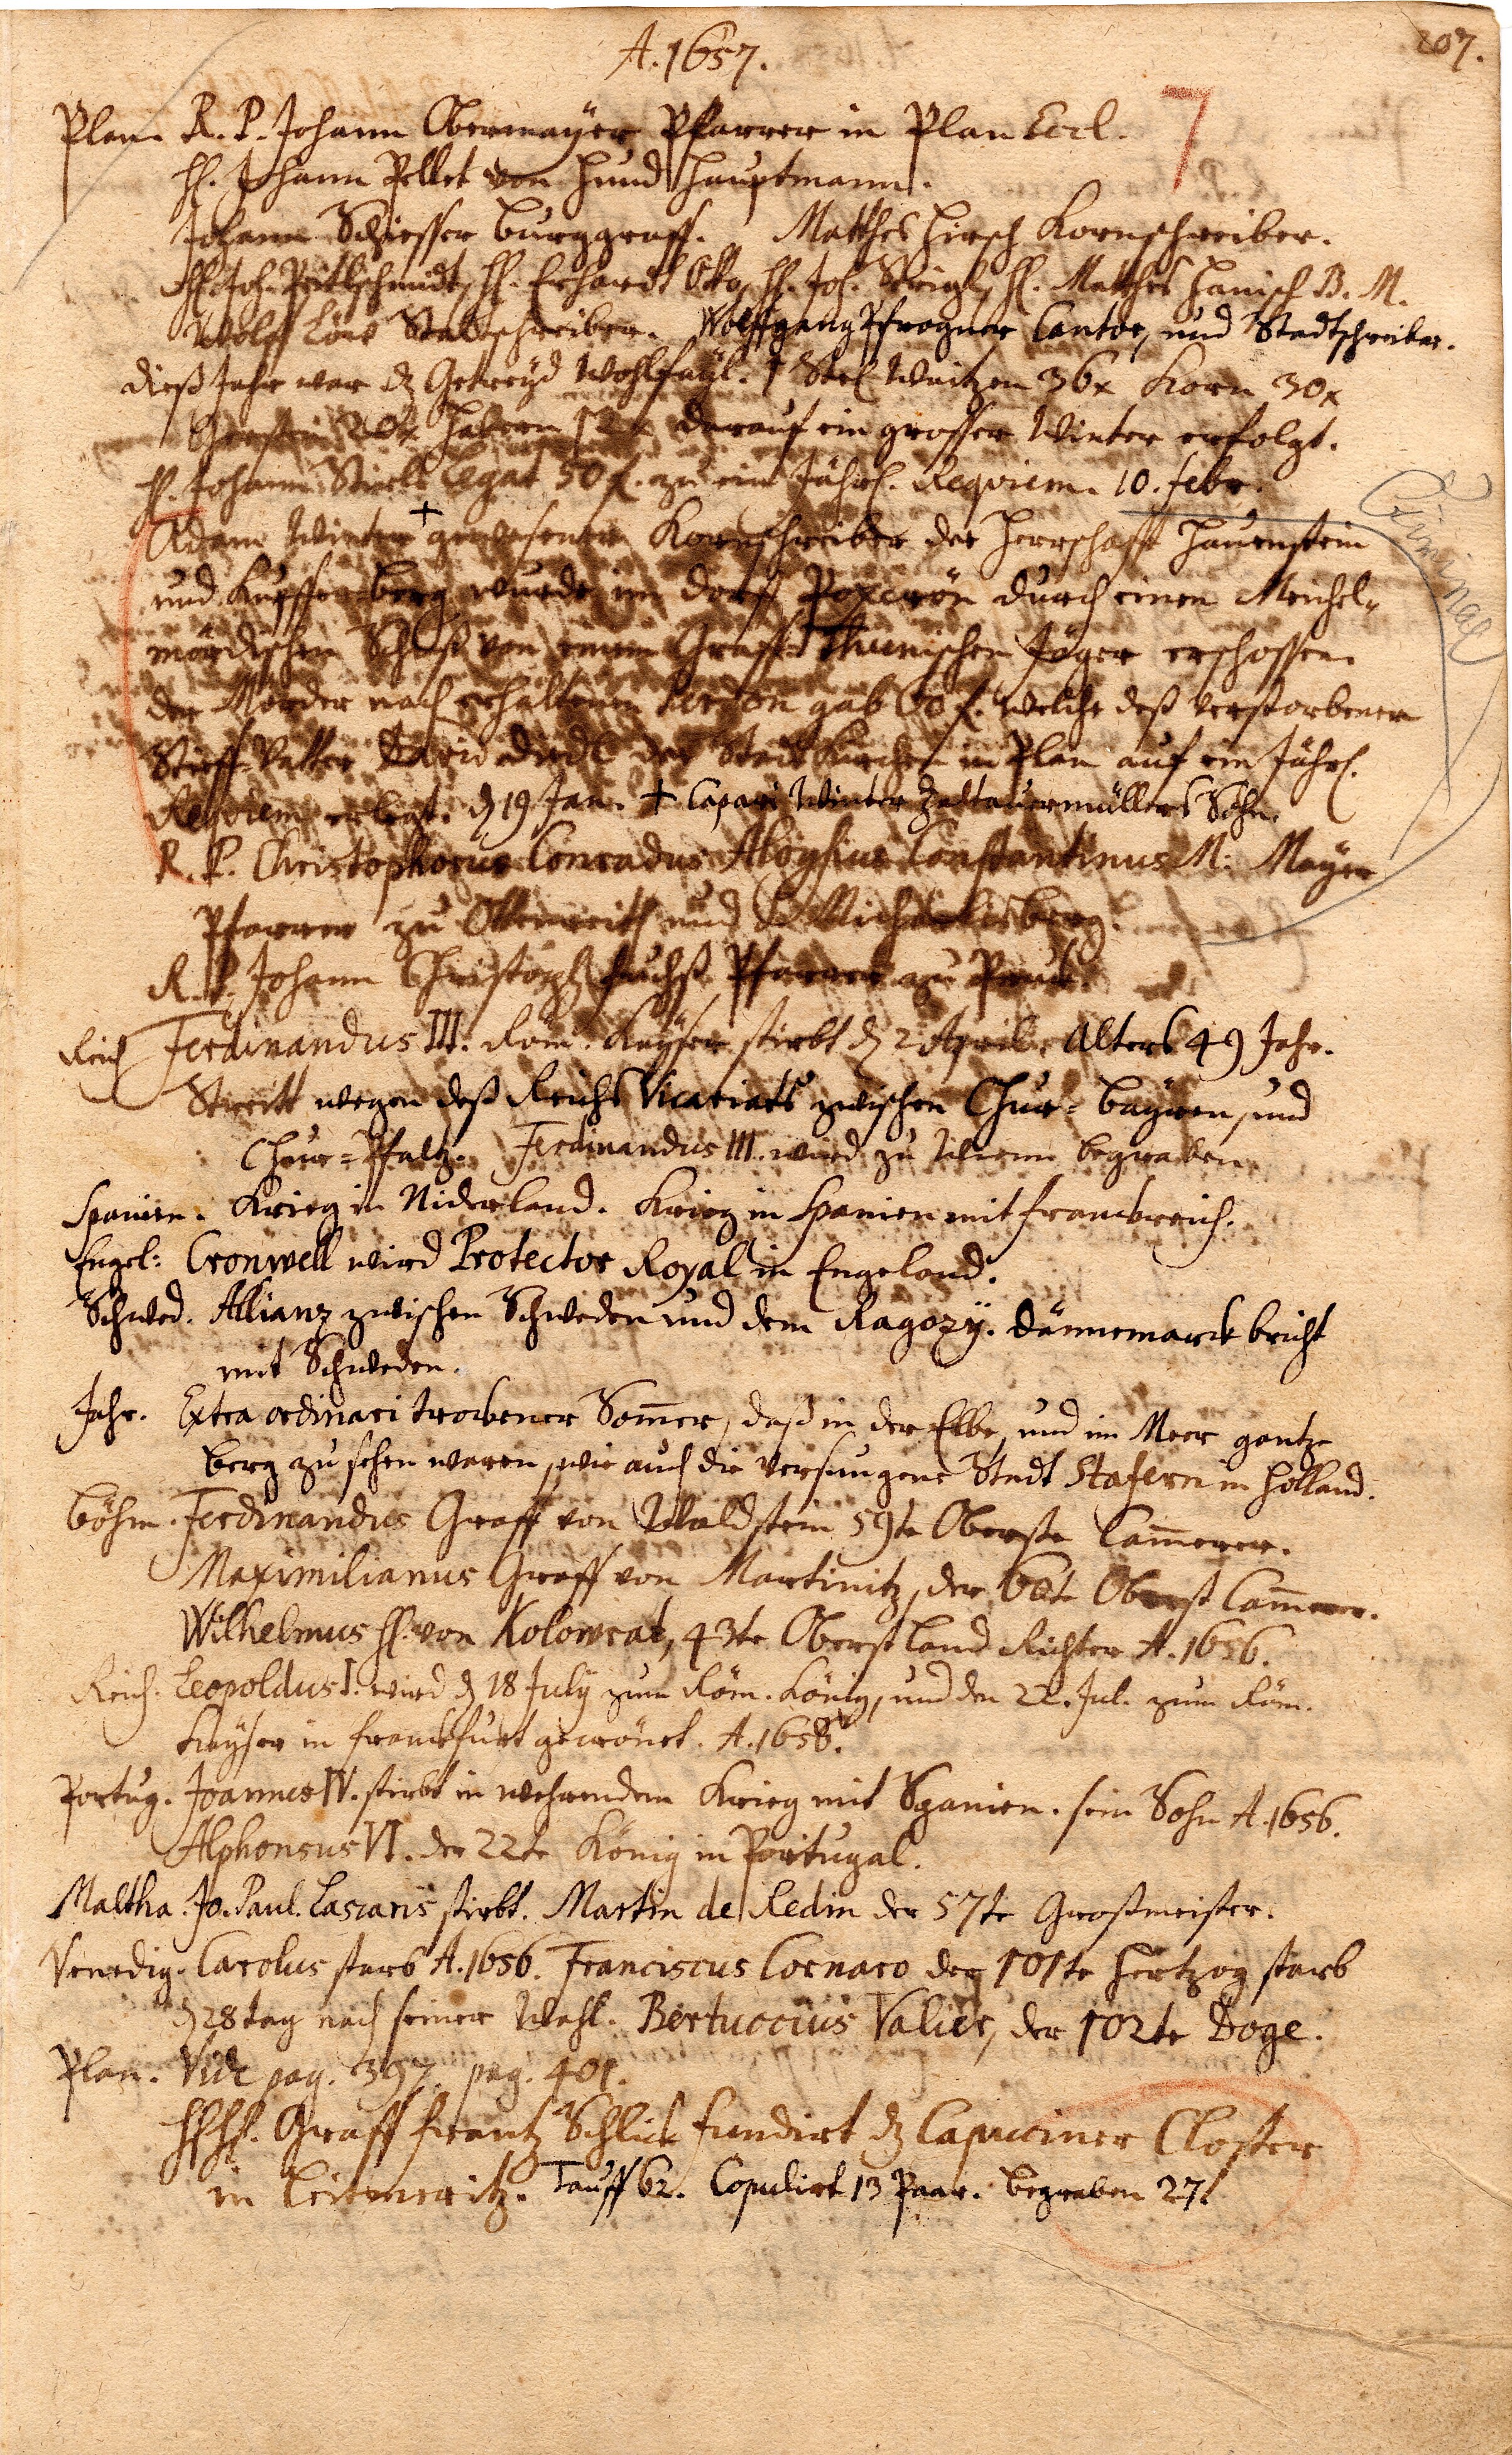 207.
A. 1657.
7
Plan. R. P. Johann Obermayer Pfarrer in Plan Eccl.
H. Johann Pellet von Hund Hauptmann.
Johann Schiesser Burggraff. Matthes Hirsch Kornschreiber.
H. Joh. H. Erhardt Otto, H. Joh. H. Matthes Hanisch B. M.
Wolff Löw Stattschreiber. Wolffgang Pfrogner Cantor, und Stadtschreiber.
dieß Jahr war dz Getreyd Wohlfayl. 1 Str Waitzen 36 x Korn 30 x
Gersten 20 x Habern 12 x darauf ein grosser Winter erfolgt.
H. Johann Legat 50 f. zu ein Jährl. Requiem. 10. febr.
Criminal
Adam Winter + gewesener Kornschreiber der Herrschafft Hauenstein
und Kupfferberg wurde im dorff durch einen Meichel-
mördischen Schuß von einem Graff Thunischen Jäger erschossen.
der Mörder nach erhaltenen Perdon gab 60 f. welche deß verstorbenen
Stieff-Vatter David der Stadt Kirchen in Plan auf ein Jährl.
Requiem erlegt. d 19 Jan. + Caspari Winter Zaltauermüllers Sohn.
R. P. Christophorus Conradus Aloysius Constantinus M: Mayer
Pfarrer zu Ottenreith und Michaelisberg.
R. P. Johann Christoph Fuchß Pfarrer zu
Reich Ferdinandus III. Röm. Kayser stirbt d 2 April. Alters 49 Jahr.
Streitt wegen deß Reichs Vicariats zwischen Chur-Bayren, und
Chur-Pfaltz. Ferdinandus III. wird zu Wienn begraben.
Spanien. Krieg in Niderland. Krieg in Spanien mit franckreich.
Engel: Cronwell wird Protector Royal in Engeland.
Schwed. Allianz zwischen Schweden und dem Ragozÿ. Dännemarck bricht
mit Schweden.
Jahr. Extra ordinari trockener Sommer, daß in der Elbe, und im Meer gantze
berg zu sehen waren, wie auch die versungene Stadt Stafern in Holland.
Böhm. Ferdinandus Graff von Waldstein 59te Oberste Cammerer.
Maximilianus Graff von Martinitz, der 60te Oberst Cammerer.
Wilhelmus H. von Kolowrat, 43te Oberst Land Richter A. 1656.
Reich. Leopoldus I. wird d 18 July zum Röm. König, und den 22. Jul. zum Röm.
Kayser in Franckfurt gecrönet. A. 1658.
Portug. Joannes IV. stirbt in wehrendem Krieg mit Spanien. sein Sohn A. 1656.
Alphonsus VI. der 22te König in Portugal.
Maltha. Jo. Paul. Lascaris stirbt. Martin de Redin der 57te Großmeister.
Venedig. Carolus starb A. 1656. Franciscus Cornaro der 101te Hertzog starb
d 28 tag nach seiner Wahl. Bertuccius Valier, der 102te Doge.
Plan. Vide pag. 397. pag. 401.
HHH. Graff Frantz Schlick fundirt dz Capuciner Closter
in Leitmeritz. Tauff 62. Copulirt 13 Paar. begraben 27.